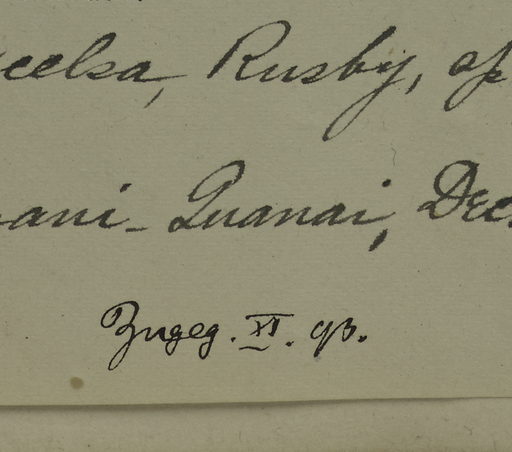 celsa, Rusby, sp
ani - Guanai, Dec
Zugeg. XI. 93.